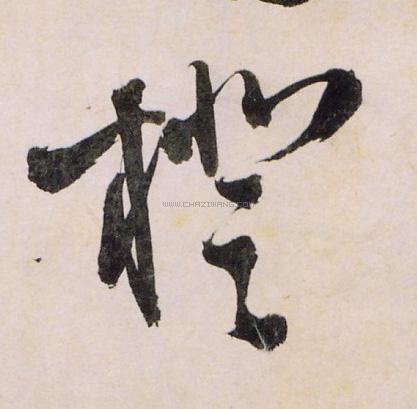 橙
WWW.CHAZIWANG.COM